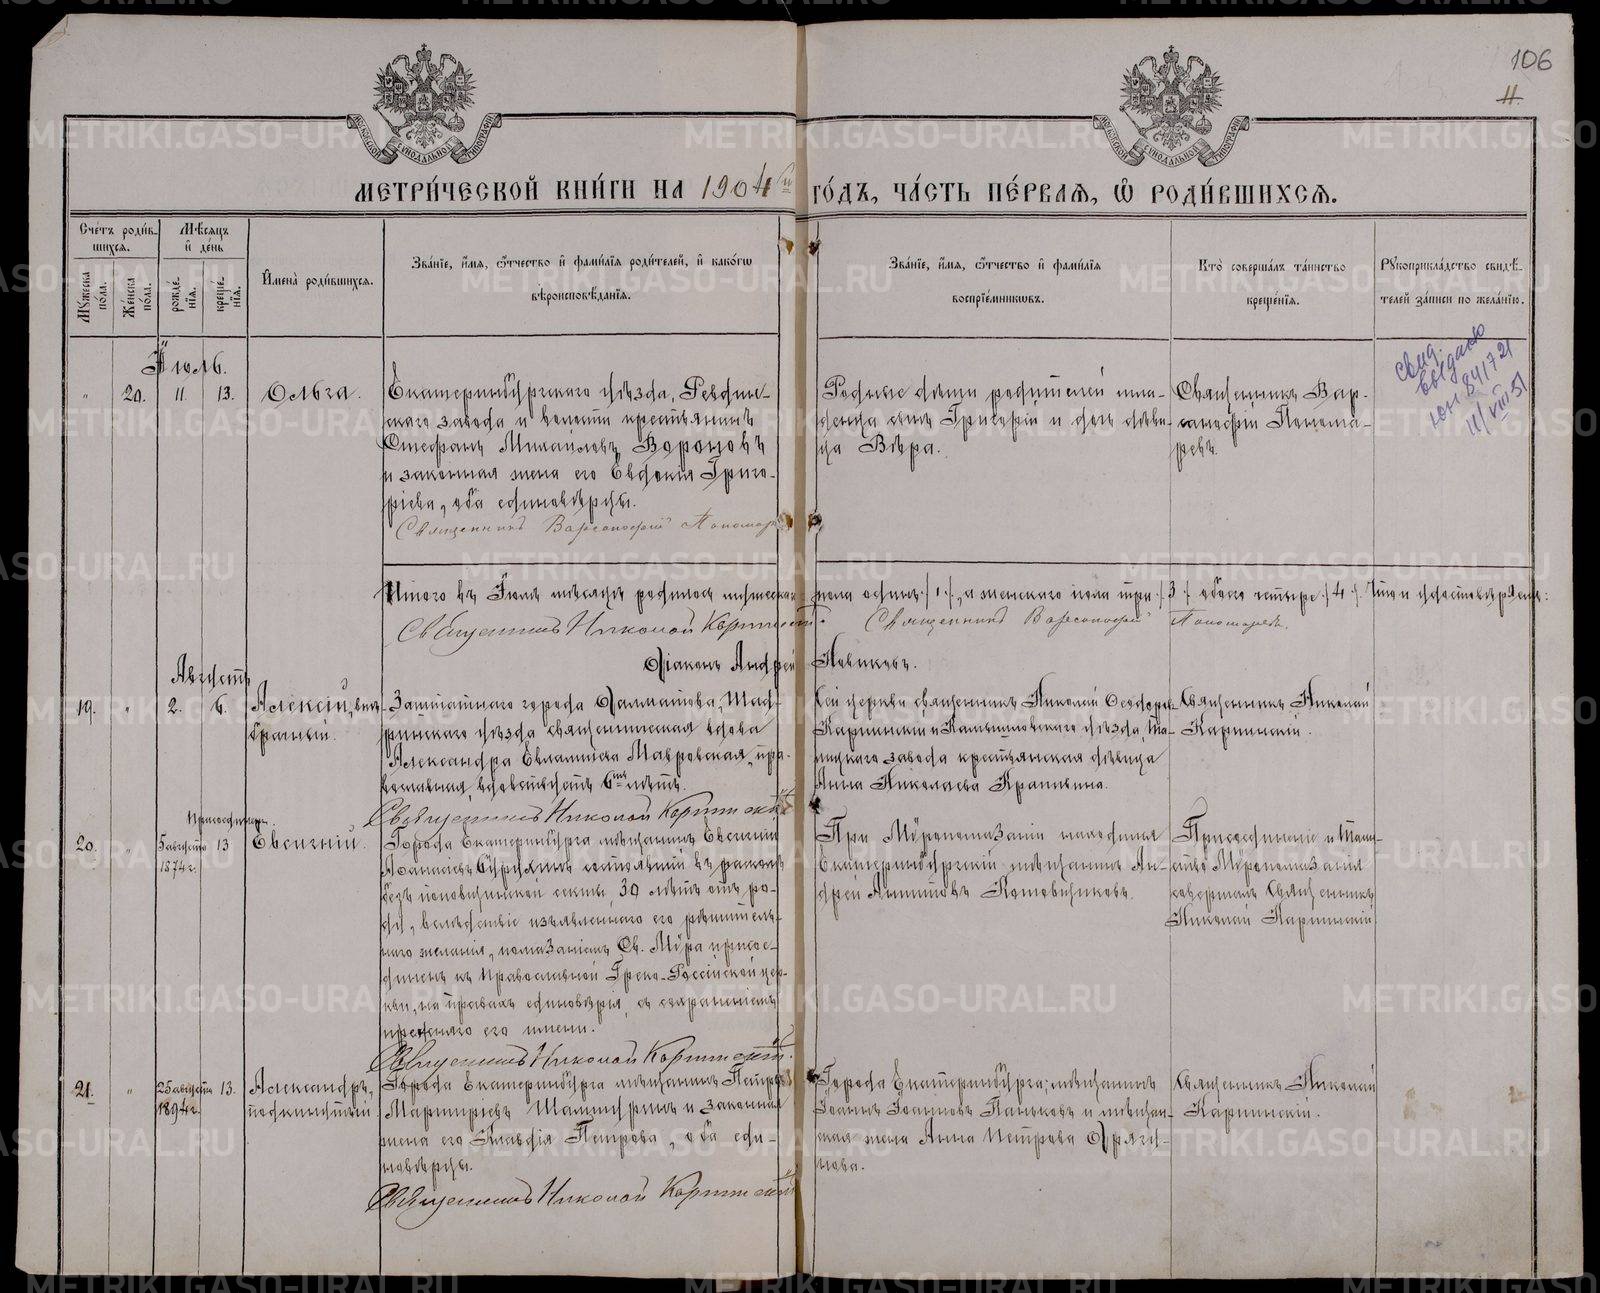 106
11.
МЕТРИ́ЧЕСКОЙ КНИ́ГИ НА 1904й ГО́ДЪ, ЧА́СТЬ ПЕ́РВАѦ, Ѡ҆ РОДИ́ВШИХСѦ.
Сче́тъ роди́в-
шихся.
Мѣ́сяцъ
и҆ де́нь
Му́жеска по́ла.
Же́нска по́ла.
рожде́-
нїя.
креще́-
нїя.
И҆мена̀ роди́вшихся.
Зва́нїе, и҆́мя, ѻ҆́тчество и҆ фами́лїя роди́телей, и҆ како́гѡ
вѣроисповѣ́данїя.
Зва́нїе, и҆́мя, ѻ҆́тчество и҆ фами́лїя
воспрїе́мниковъ.
Кто̀ соверша́лъ та́инство
креще́нїя.
Рукоприкла́дство свидѣ́-
телей за́писи по жела́нїю.
Іюль.
" 20. 11. 13. Ольга.
Екатеринбургскаго уѣзда, Ревдин-
скаго завода и волости крестьянинъ
Стефанъ Михаиловъ Вороновъ
и законная жена его Евдокія Григо-
ріева, оба единовѣрцы.
Священникъ Варсонофій Пономар
Родные дѣти родителей мла-
денца сынъ Григорій и дочь дѣви-
ца Вѣра.
Священникъ Вар-
сонофій Понома-
ревъ.
Свид.
выдано
юн 84/721
11/VIII 51
Итого въ Іюлѣ мѣсяцѣ родилось мужеска пола одинъ /1/, а женскаго пола три /3/ обоего четыре /4/. Что и удостовѣряемъ:
Священникъ Николай Карпинскій. Священникъ Варсонофій Пономаревъ.
Діаконъ Андрей Новиковъ.
Августъ
19. " 2. 6. Алексій, вне-
брачный.
Заштатнаго города Далматова, Шад-
ринскаго уѣзда священническая вдова
Александра Евлампіева Мавровская, пра-
вославная, вдовствуетъ 6ть лѣтъ.
Священникъ Николай Карпинскій
Сей церкви священникъ Николай Ѳеодоровъ
Карпинскій и Камышловскаго уѣзда, Та-
лицкаго завода крестьянская дѣвица
Анна Николаева Крапивина.
Священникъ Николай
Карпинскій.
20. " 5 августа 13
1874 г.
Евгеній.
Города Екатеринбурга мѣщанинъ Евгеній
лѣтъ отъ ро-
ду, вслѣдствіе изъявленнаго его рѣшитель-
наго желанія, помазаніемъ Св. Мѵра присое-
диненъ къ Православной Греко-Россійской цер-
кви, на правахъ единовѣрія, съ сохраненіемъ
прежняго его имени.
Священникъ Николай Карпинскій.
При Мѵропомазаніи находился
Екатеринбургскій мѣщанинъ Ан-
дрей Антиповъ Котовщиковъ.
Присоединеніе и Таин-
ство Мѵропомазанія
совершалъ Священникъ
Николай Карпинскій
21. " 25 августа 13.
1894 г.
Александръ,
подкинутый
Города Екатеринбурга мѣщанинъ Петръ
и законная
жена его Клавдія Петрова, оба еди-
новѣрцы.
Священникъ Николай Карпинскій
Города Екатеринбурга; мѣщанинъ
Іоаннъ Іоанновъ Паньковъ и мѣщан-
ская жена Анна Петрова Дрягу-
нова.
Священникъ Николай
Карпинскій.
METRIKI.GASO-URAL.RU